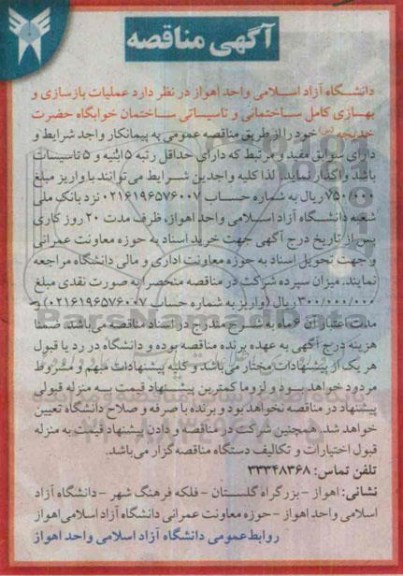 آگهی مناقصه
دانشگاه آزاد اسلامی واحد اهواز در نظر دارد عملیات بازسازی و
بهسازی کامل ساختمانی و تاسیساتی ساختمان خوابگاه حضرت
خدیجه خود را از طریق مناقصه عمومی به پیمانکار واجد شرایط و
دارای سوابق مفید و مرتبط که دارای حداقل رتبه ۵ ابنیه و ۵ تاسیسات
باشد واگذار نماید. لذا کلیه واجدین شرایط می توانند با واریز مبلغ
۷۵۰/۰۰۰ ریال به شماره حساب ۰۲۱۶۱۹۶۵۷۶۰۰۷ نزد بانک ملی
شعبه دانشگاه آزاد اسلامی واحد اهواز، ظرف مدت ۲۰ روز کاری
پس از تاریخ درج آگهی جهت خرید اسناد به حوزه معاونت عمرانی
و جهت تحویل اسناد به حوزه معاونت اداری و مالی دانشگاه مراجعه
نمایند. میزان سپرده شرکت در مناقصه منحصرا به صورت نقدی مبلغ
۳۰۰/۰۰۰/۰۰۰ ریال (واریز به شماره حساب ۰۲۱۶۱۹۶۵۷۶۰۰۷) و
مدت اعتبار آن ۶ ماه به شرح مندرج در اسناد مناقصه می‌باشد. ضمنا
هزینه درج آگهی به عهده برنده مناقصه بوده و دانشگاه در رد یا قبول
هر یک از پیشنهادات مختار می‌باشد و کلیه پیشنهادات مبهم و مشروط
مردود خواهد بود و لزوما کمترین پیشنهاد قیمت به منزله قبولی
پیشنهاد در مناقصه نخواهد بود و برنده با صرفه و صلاح دانشگاه تعیین
خواهد شد. همچنین شرکت در مناقصه و دادن پیشنهاد قیمت به منزله
قبول اختیارات و تکالیف دستگاه مناقصه گزار می‌باشد.
تلفن تماس: ۳۳۳۴۸۳۶۸
نشانی: اهواز - بزرگراه گلستان - فلکه فرهنگ شهر - دانشگاه آزاد
اسلامی واحد اهواز - حوزه معاونت عمرانی دانشگاه آزاد اسلامی اهواز
روابط عمومی دانشگاه آزاد اسلامی واحد اهواز
ParsNamadData